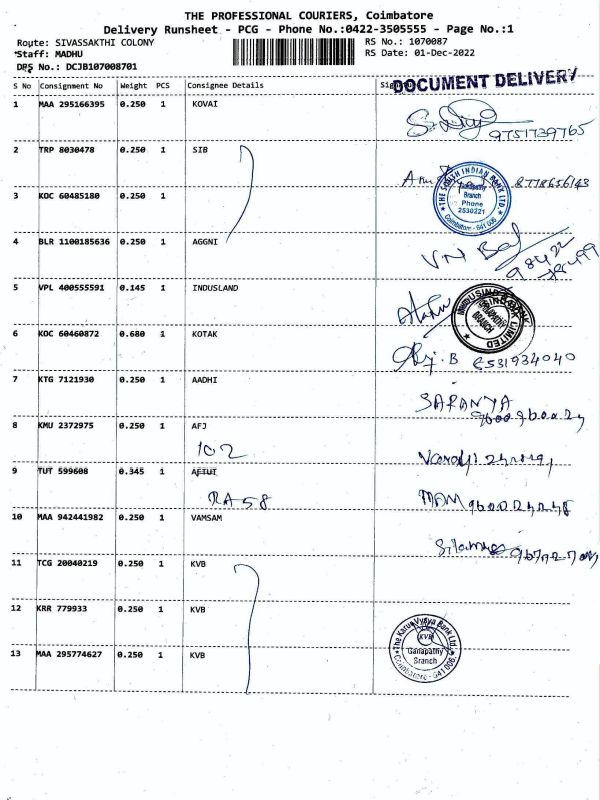 THE PROFESSIONAL COURIERS, Coimbatore
Delivery Runsheet - PCG - Phone No.:0422-3505555 - Page No.:1
Route: SIVASSAKTHI COLONY RS No.: 1070087
*Staff: MADHU RS Date: 01-Dec-2022
DPS No.: DCJB107008701
S No Consignment No Weight PCS Consignee Details
DOCUMENT DELIVERY
1 MAA 295166395 0.250 1 KOVAI
9751739765
2 TRP 8030478 0.250 1 SIB
8778656143
THE SOUTH INDIAN BANK LTD.
Ganapathy
Branch
Phone
2530221
Coimbatore - 641 006
3 KOC 60485180 0.250 1
4 BLR 1100185636 0.250 1 AGGNI
5 VPL 400555591 0.145 1 INDUSLAND
INDUSIND BANK LIMITED
GANAPATHY
BRANCH
6 KOC 60460872 0.680 1 KOTAK
7 KTG 7121930 0.250 1 AADHI
SARANYA
8 KMU 2372975 0.250 1 AFJ
102
9 TUT 599608 0.345 1 AFTUT
RA58
10 MAA 942441982 0.250 1 VAMSAM
11 TCG 20040219 0.250 1 KVB
12 KRR 779933 0.250 1 KVB
The Karur Vysya Bank Ltd.
KVB
Ganapathy
Branch
Coimbatore - 641 006
13 MAA 295774627 0.250 1 KVB